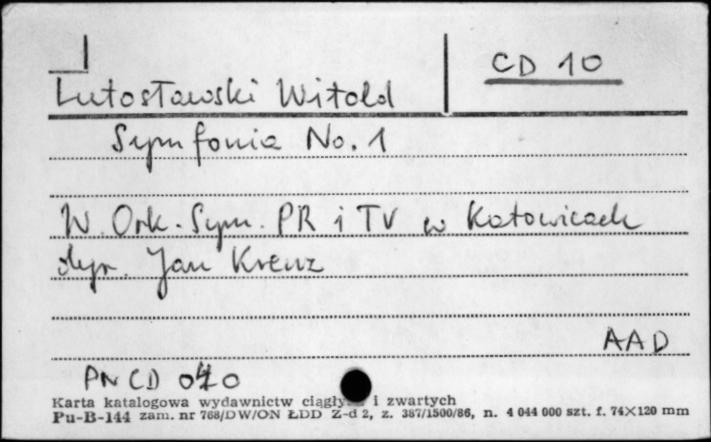 CD 10
Lutosławski Witold
Symfonia No. 1
W. Ork. Sym. PR i TV w Katowicach
dyr. Jan Krenz
AAD
PNCD 040
Karta katalogowa wydawnictw ciągły i zwartych
Pu-B-144 zam. nr 768/DW/ON ŁDD Z-d 2, z. 387/1500/86, n. 4 044 000 szt. f. 74×120 mm